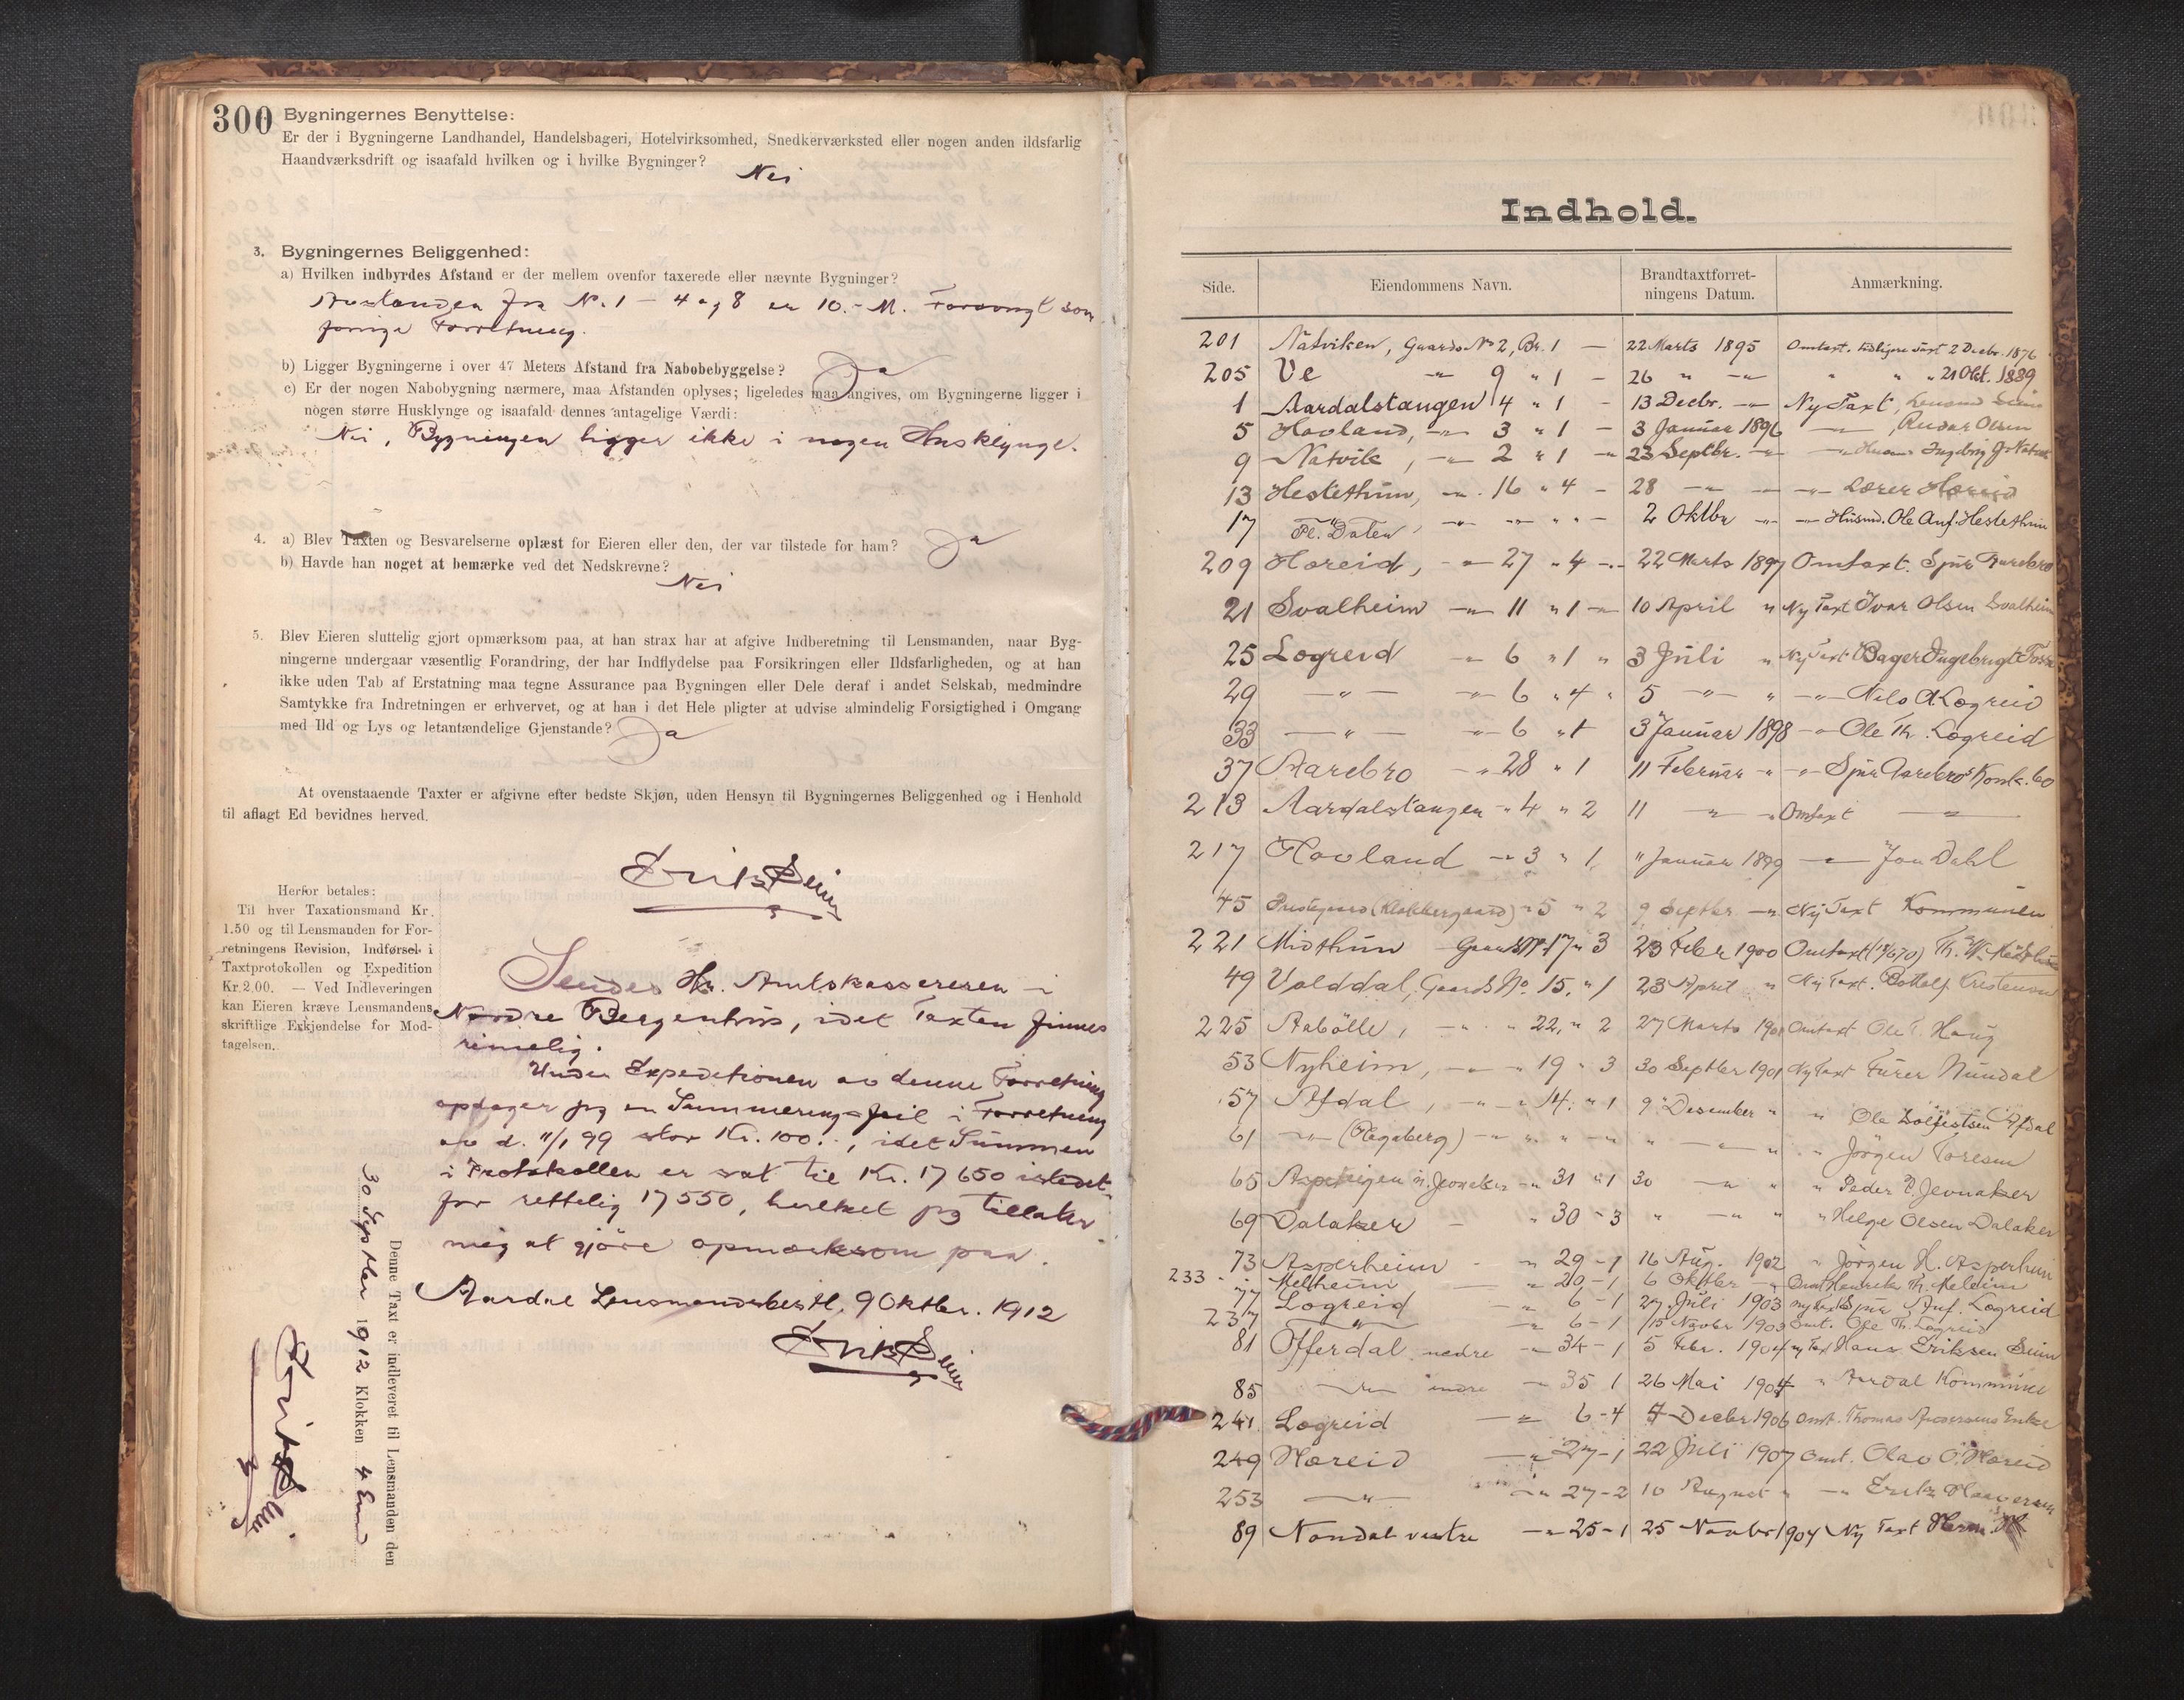 300
Bygningernes Benyttelse:
Er der i Bygningerne Landhandel, Handelsbageri, Hotelvirksomhed, Snedkerværksted eller nogen anden ildsfarlig
Haandværksdrift og isaafald hvilken og i hvilke Bygninger?
Nei
3. Bygningernes Beliggenhed:
a) Hvilken indbyrdes Afstand er der mellem ovenfor taxerede eller nævnte Bygninger?
Avstanden fra No. 1 — 4 og 8 er 10.- M. Forøvrigt som
forrige Forretning.
b) Ligger Bygningerne i over 47 Meters Afstand fra Nabobebyggelse? Ja
c) Er der nogen Nabobygning nærmere, maa Afstanden oplyses; ligeledes maa angives, om Bygningerne ligger i
nogen større Husklynge og isaafald dennes antagelige Værdi:
Nei, Bygningen ligger ikke i nogen Husklynge.
4. a) Blev Taxten og Besvarelserne oplæst for Eieren eller den, der var tilstede for ham? Ja
b) Havde han noget at bemærke ved det Nedskrevne?
Nei
5. Blev Eieren sluttelig gjort opmærksom paa, at han strax har at afgive Indberetning til Lensmanden, naar Byg-
ningerne undergaar væsentlig Forandring, der har Indflydelse paa Forsikringen eller Ildsfarligheden, og at han
ikke uden Tab af Erstatning maa tegne Assurance paa Bygningen eller Dele deraf i andet Selskab, medmindre
Samtykke fra Indretningen er erhvervet, og at han i det Hele pligter at udvise almindelig Forsigtighed i Omgang
med Ild og Lys og letantændelige Gjenstande? Ja
At ovenstaaende Taxter er afgivne efter bedste Skjøn, uden Hensyn til Bygningernes Beliggenhed og i Henhold
til aflagt Ed bevidnes herved.
Erik Seim
Herfor betales:
Til hver Taxationsmand Kr.
1.50 og til Lensmanden for For-
retningens Revision, Indførsel i
Taxtprotokollen og Expedition
Kr. 2.00. — Ved Indleveringen
kan Eieren kræve Lensmandens
skriftlige Erkjendelse for Mod-
tagelsen.
Sendes Hr. Amtskassereren i
Nordre Bergenhus, idet Taxten finnes
rimelig.
Under Expeditionen av denne Forretning
opdager jeg en Summering-feil i Forretning
av d. 11/1 99 stor Kr. 100.-, idet Summen
i Protokollen er sat til Kr. 17650 istedet-
for rettelig 17550, hvilket jeg tillater
mig at gjøre opmerksom paa.
Aardal Lensmandsbest., 9 Oktbr. 1912
Erik Seim
Denne Taxt er indleveret til Lensmanden den
30 Septbr 1912 Klokken 4 Emd
Erik Seim
Indhold.
Side. Eiendommens Navn. Brandtaxtforret- Anmærkning.
ningens Datum.
201 Natviken, Gaards No 2, Br. 1 — 22 Marts 1895 Omtaxt. tidligere Taxt 2 Decbr. 1876
205 Ve —"— 9 " 1 — 26 " —"— " " " 21 Okt. 1889
1 Aardalstangen 4 " 1 — 13 Decbr. —"— Ny Taxt, Lensmd Seim
5 Hovland, —"— 3 " 1 — 3 Januar 1896 —"—, Olsen
9 Natvik, —"— 2 " 1 — 23 Septbr. —"— —"—
13 Hestethun, —"— 16 " 4 — 28 —"— —"— Lærer Hæreid
17 Pl. Dalen, —"— —"— " " — 2 Oktbr —"— —"— Husmd. Ole Anf. Hestethun
209 Hæreid, —"— 27 " 4 — 22 Marts 1897 Omtaxt. Sjur Aarebro
21 Svalheim —"— 11 " 1 — 10 April " Ny Taxt Ivar Olsen Svalheim
25 Lægreid —"— 6 " 1 " 3 Juli " Ny Taxt Bager Ingebrigt
29 —"— —"— 6 " 4 " 5 —"— " —"— Nils A. Lægreid
33 —"— —"— 6 " 1 3 Januar 1898 —"— Ole Th. Lægreid
37 Aarebro —"— 28 " 1 11 Februar " —"— Sjur Aarebros
213 Aardalstangen " 4 " 2 11 —"— " Omtaxt —"—
217 Hovland —"— 3 " 1 " Januar 1899 —"— Jon Dahl
45 Prestegaard (Klokkergaard) " 5 " 2 9 Septbr. —"— Ny Taxt Kommunen
221 Midthun Gaards No 17 " 3 23 Febr 1900 Omtaxt
49 Volddal, Gaards No 15, " 1 23 April " Ny Taxt.
225 Aabölle, —"— " 22, " 2 27 Marts 1901 Omtaxt Ole T. Haug
53 Nyheim, —"— 19 " 3 30 Septbr 1901 Ny Taxt Furer Nundal
57 Afdal, —"— 14. " 1 9 Desember " " Ole Afdal
61 —"— —"— " " —"— " —"— " " Jörgen Toresen
65 31 " 1 30 —"— " " Peder P. Jevnaker
69 Dalaker — " 30 - 3 " —"— " " Helge Olsen Dalaker
73 Asperheim - " 29 - 1 16 Aug. 1902 " Jörgen H. Asperheim
233 Melheim — " 20 - 1 6 Oktbr —"— Omt. Henrik Th. Melheim
77 Lægreid — " 6 - 1 27 Juli 1903 ny Taxt Sjur Anf. Lægreid
237 —"— —"— 6 - 1 15 Novbr 1903 Omt. Ole Th. Lægreid
81 Offerdal nedre —"— 34 - 1 5 Febr. 1904 ny Taxt Hans Eriksen Seim
85 —"— indre — 35 1 26 Mai 1904 " Aardal Kommune
241 Lægreid —"— 6 - 4 4 Decbr 1906 Omt. Thomas Enke
249 Hæreid —"— 27 - 1 22 Juli 1907 Omt. Olav O. Hæreid
253 —"— —"— 27 - 2 10 August " —"— Erik
89 Nondal vestre —"— 25 - 1 25 Novbr 1904 Ny Taxt